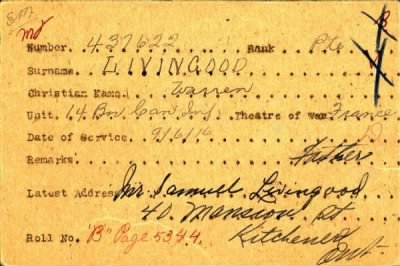 EM.
md
Number. 437622 Rank Pte
Surname LIVINGOOD
Christian Name. Warren
Unit. 14 Bn. Can. Inf. Theatre of war. France
Date of Service. 9/6/16
Remarks. Father
Latest Address. Mr. Samuel Livingood
40. Mansion St
Kitchener
Ont.
Roll No. "B" Page 5344.